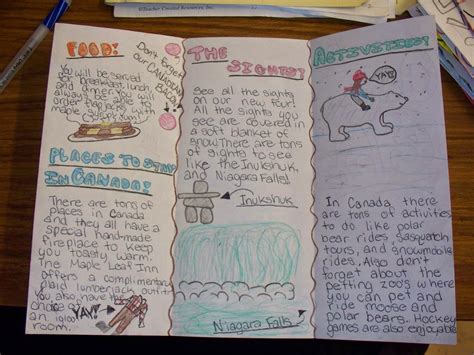 ©Teacher Created Resources, Inc.
FOOD!
You will be served
for breakfast, lunch,
and dinner. You will
always be able to
order flapjacks with
maple syrup!
Don't forget
our CANADIAN
BACON!
PLACES TO STAY
IN CANADA!
There are tons of
places in Canada
and they all have
a special hand-made
fireplace to keep
you toasty warm.
The Maple Leaf Inn
offers a complimentary
plaid lumberjack outfit.
You also have the
choice of
an igloo
room.
YAY!
THE
SIGHTS!
See all the sights
on our new tour!
All the sights you
see are covered in
a soft blanket of
snow. There are tons
of sights to see
like the Inukshuk,
and Niagara Falls!
Inukshuk
Niagara Falls
ACTIVITIES!
YAY!
In Canada, there
are tons of activities
to do like polar
bear rides, Sasquatch
tours, and snowmobile
rides. Also don't
forget about the
petting zoo's where
you can pet and
ride moose and
polar bears. Hockey
games are also enjoyable